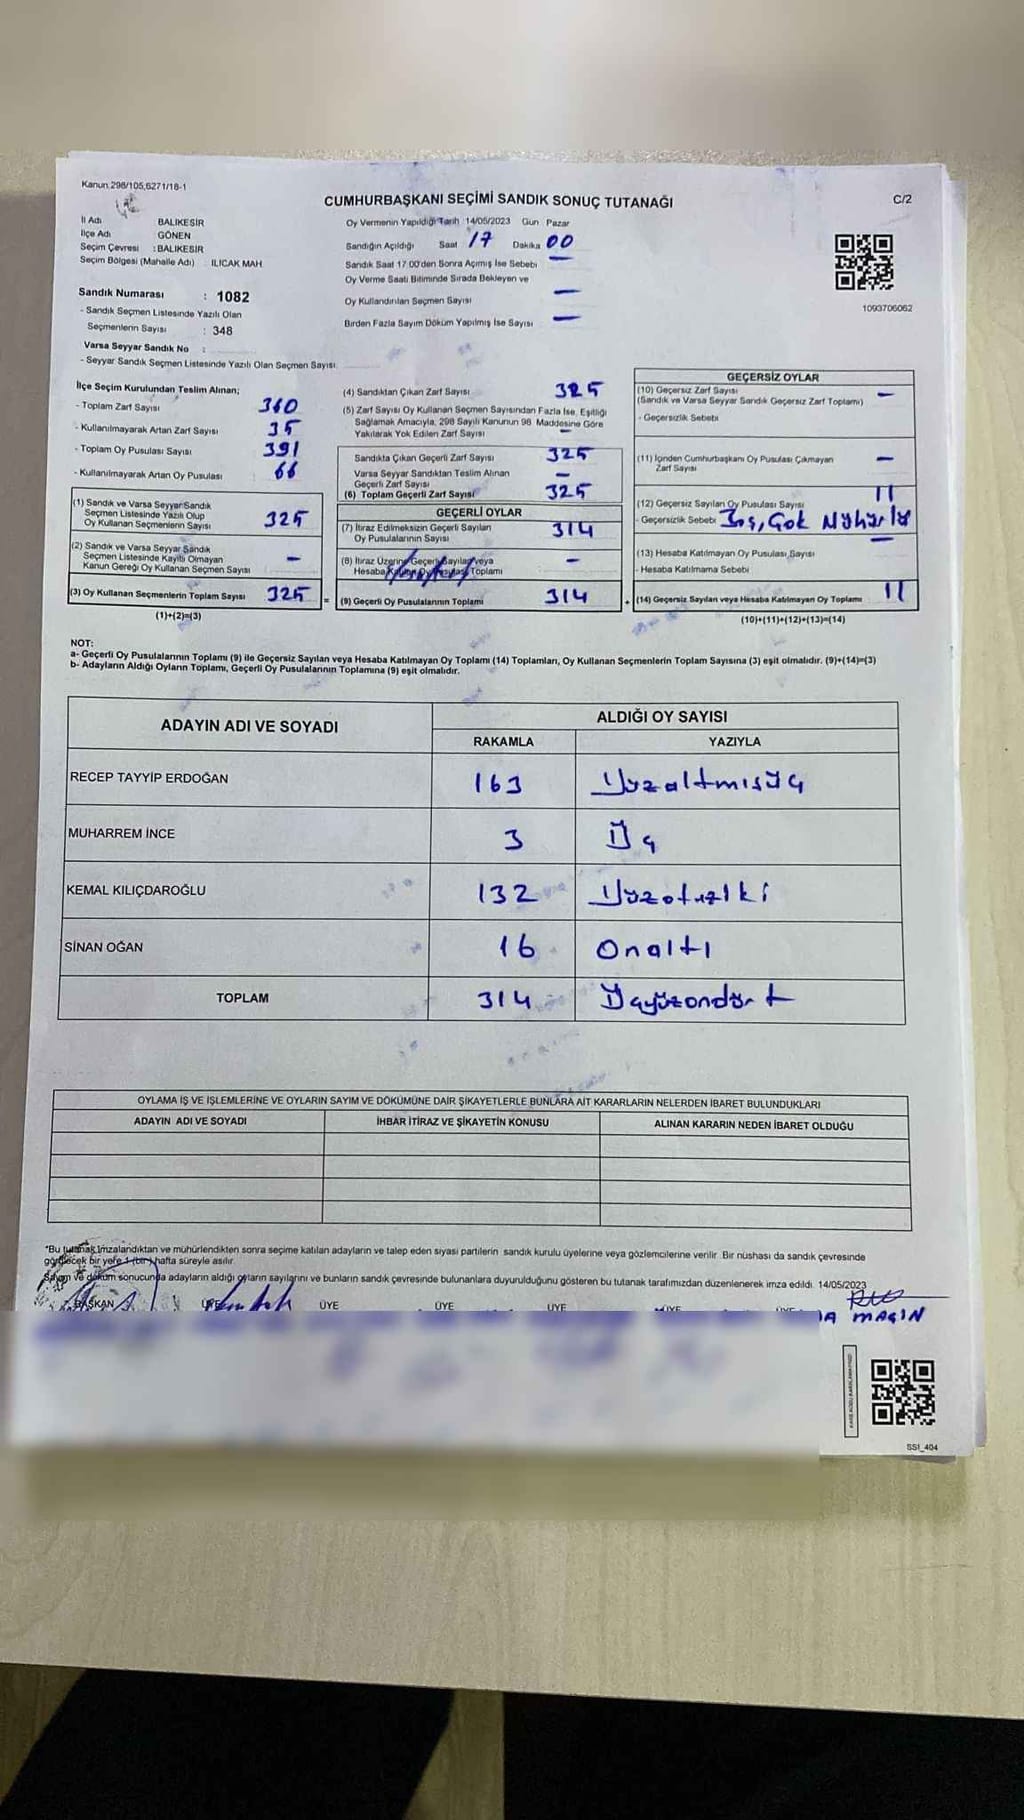 Kanun 298/105,6271/18-1
CUMHURBAŞKANI SEÇİMİ SANDIK SONUÇ TUTANAĞI
C/2
İl Adı BALIKESİR
İlçe Adı GÖNEN
Seçim Çevresi : BALIKESİR
Seçim Bölgesi (Mahalle Adı) ILICAK MAH.
Oy Vermenin Yapıldığı Tarih 14/05/2023 Gün Pazar
Sandığın Açıldığı Saat 17 Dakika 00
Sandık Saat 17.00'den Sonra Açımış İse Sebebi —
Oy Verme Saati Bitiminde Sırada Bekleyen ve
Oy Kullandırılan Seçmen Sayısı —
Birden Fazla Sayım Döküm Yapılmış İse Sayısı —
1093706062
Sandık Numarası : 1082
- Sandık Seçmen Listesinde Yazılı Olan
Seçmenlerin Sayısı : 348
Varsa Seyyar Sandık No :
- Seyyar Sandık Seçmen Listesinde Yazılı Olan Seçmen Sayısı:
İlçe Seçim Kurulundan Teslim Alınan;
- Toplam Zarf Sayısı 360
- Kullanılmayarak Artan Zarf Sayısı 35
- Toplam Oy Pusulası Sayısı 391
- Kullanılmayarak Artan Oy Pusulası 66
(1) Sandık ve Varsa Seyyar Sandık
Seçmen Listesinde Yazılı Olup
Oy Kullanan Seçmenlerin Sayısı 325
(2) Sandık ve Varsa Seyyar Sandık
Seçmen Listesinde Kayıtlı Olmayan
Kanun Gereği Oy Kullanan Seçmen Sayısı —
(3) Oy Kullanan Seçmenlerin Toplam Sayısı 325
(1)+(2)=(3)
(4) Sandıktan Çıkan Zarf Sayısı 325
(5) Zarf Sayısı Oy Kullanan Seçmen Sayısından Fazla İse, Eşitliği
Sağlamak Amacıyla, 298 Sayılı Kanunun 98. Maddesine Göre
Yakılarak Yok Edilen Zarf Sayısı —
Sandıkta Çıkan Geçerli Zarf Sayısı 325
Varsa Seyyar Sandıktan Teslim Alınan
Geçerli Zarf Sayısı —
(6) Toplam Geçerli Zarf Sayısı 325
GEÇERLİ OYLAR
(7) İtiraz Edilmeksizin Geçerli Sayılan
Oy Pusulalarının Sayısı 314
(8) İtiraz Üzerine Geçerli Sayılan veya
Hesaba Katılan Oy Pusulası Toplamı —
= (9) Geçerli Oy Pusulalarının Toplamı 314
GEÇERSİZ OYLAR
(10) Geçersiz Zarf Sayısı —
(Sandık ve Varsa Seyyar Sandık Geçersiz Zarf Toplamı)
- Geçersizlik Sebebi
(11) İçinden Cumhurbaşkanı Oy Pusulası Çıkmayan
Zarf Sayısı —
(12) Geçersiz Sayılan Oy Pusulası Sayısı 11
- Geçersizlik Sebebi Boş, Çok Mühürlü
(13) Hesaba Katılmayan Oy Pusulası Sayısı —
- Hesaba Katılmama Sebebi
+ (14) Geçersiz Sayılan veya Hesaba Katılmayan Oy Toplamı 11
(10)+(11)+(12)+(13)=(14)
NOT:
a- Geçerli Oy Pusulalarının Toplamı (9) ile Geçersiz Sayılan veya Hesaba Katılmayan Oy Toplamı (14) Toplamları, Oy Kullanan Seçmenlerin Toplam Sayısına (3) eşit olmalıdır. (9)+(14)=(3)
b- Adayların Aldığı Oyların Toplamı, Geçerli Oy Pusulalarının Toplamına (9) eşit olmalıdır.
ADAYIN ADI VE SOYADI ALDIĞI OY SAYISI
RAKAMLA YAZIYLA
RECEP TAYYİP ERDOĞAN 163 Yüzaltmışüç
MUHARREM İNCE 3 Üç
KEMAL KILIÇDAROĞLU 132 Yüzotuziki
SİNAN OĞAN 16 Onaltı
TOPLAM 314 Üçyüzondört
OYLAMA İŞ VE İŞLEMLERİNE VE OYLARIN SAYIM VE DÖKÜMÜNE DAİR ŞİKAYETLERLE BUNLARA AİT KARARLARIN NELERDEN İBARET BULUNDUKLARI
ADAYIN ADI VE SOYADI İHBAR İTİRAZ VE ŞİKAYETİN KONUSU ALINAN KARARIN NEDEN İBARET OLDUĞU
*Bu tutanak imzalandıktan ve mühürlendikten sonra seçime katılan adayların ve talep eden siyasi partilerin sandık kurulu üyelerine veya gözlemcilerine verilir. Bir nüshası da sandık çevresinde
görülecek bir yere 1 (bir) hafta süreyle asılır.
Sayım ve döküm sonucunda adayların aldığı oyların sayılarını ve bunların sandık çevresinde bulunanlara duyurulduğunu gösteren bu tutanak tarafımızdan düzenlenerek imza edildi. 14/05/2023
BAŞKAN ÜYE ÜYE ÜYE ÜYE ÜYE
MAÇIN
SS1_404